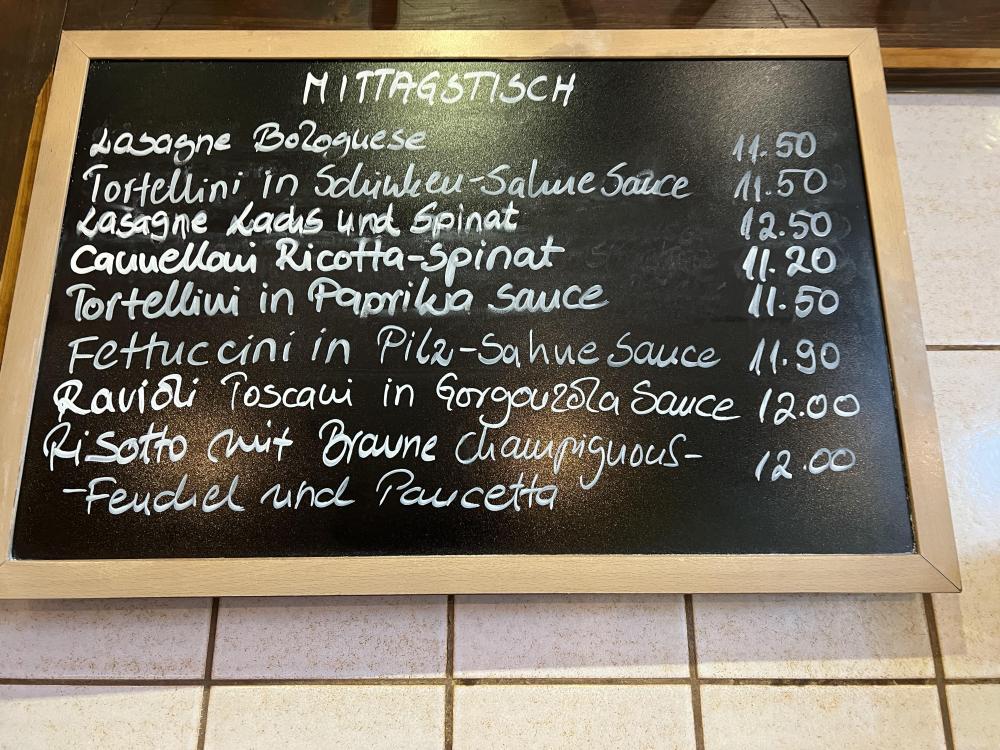 MITTAGSTISCH
Lasagne Bolognese 11.50
Tortellini in Schinken-Sahne Sauce 11.50
Lasagne Lachs und Spinat 12.50
Cannelloni Ricotta-Spinat 11.20
Tortellini in Paprika Sauce 11.50
Fettuccini in Pilz-Sahne Sauce 11.90
Ravioli Toscani in Gorgonzola Sauce 12.00
Risotto mit Braune Champignons- 12.00
-Fenchel und Pancetta